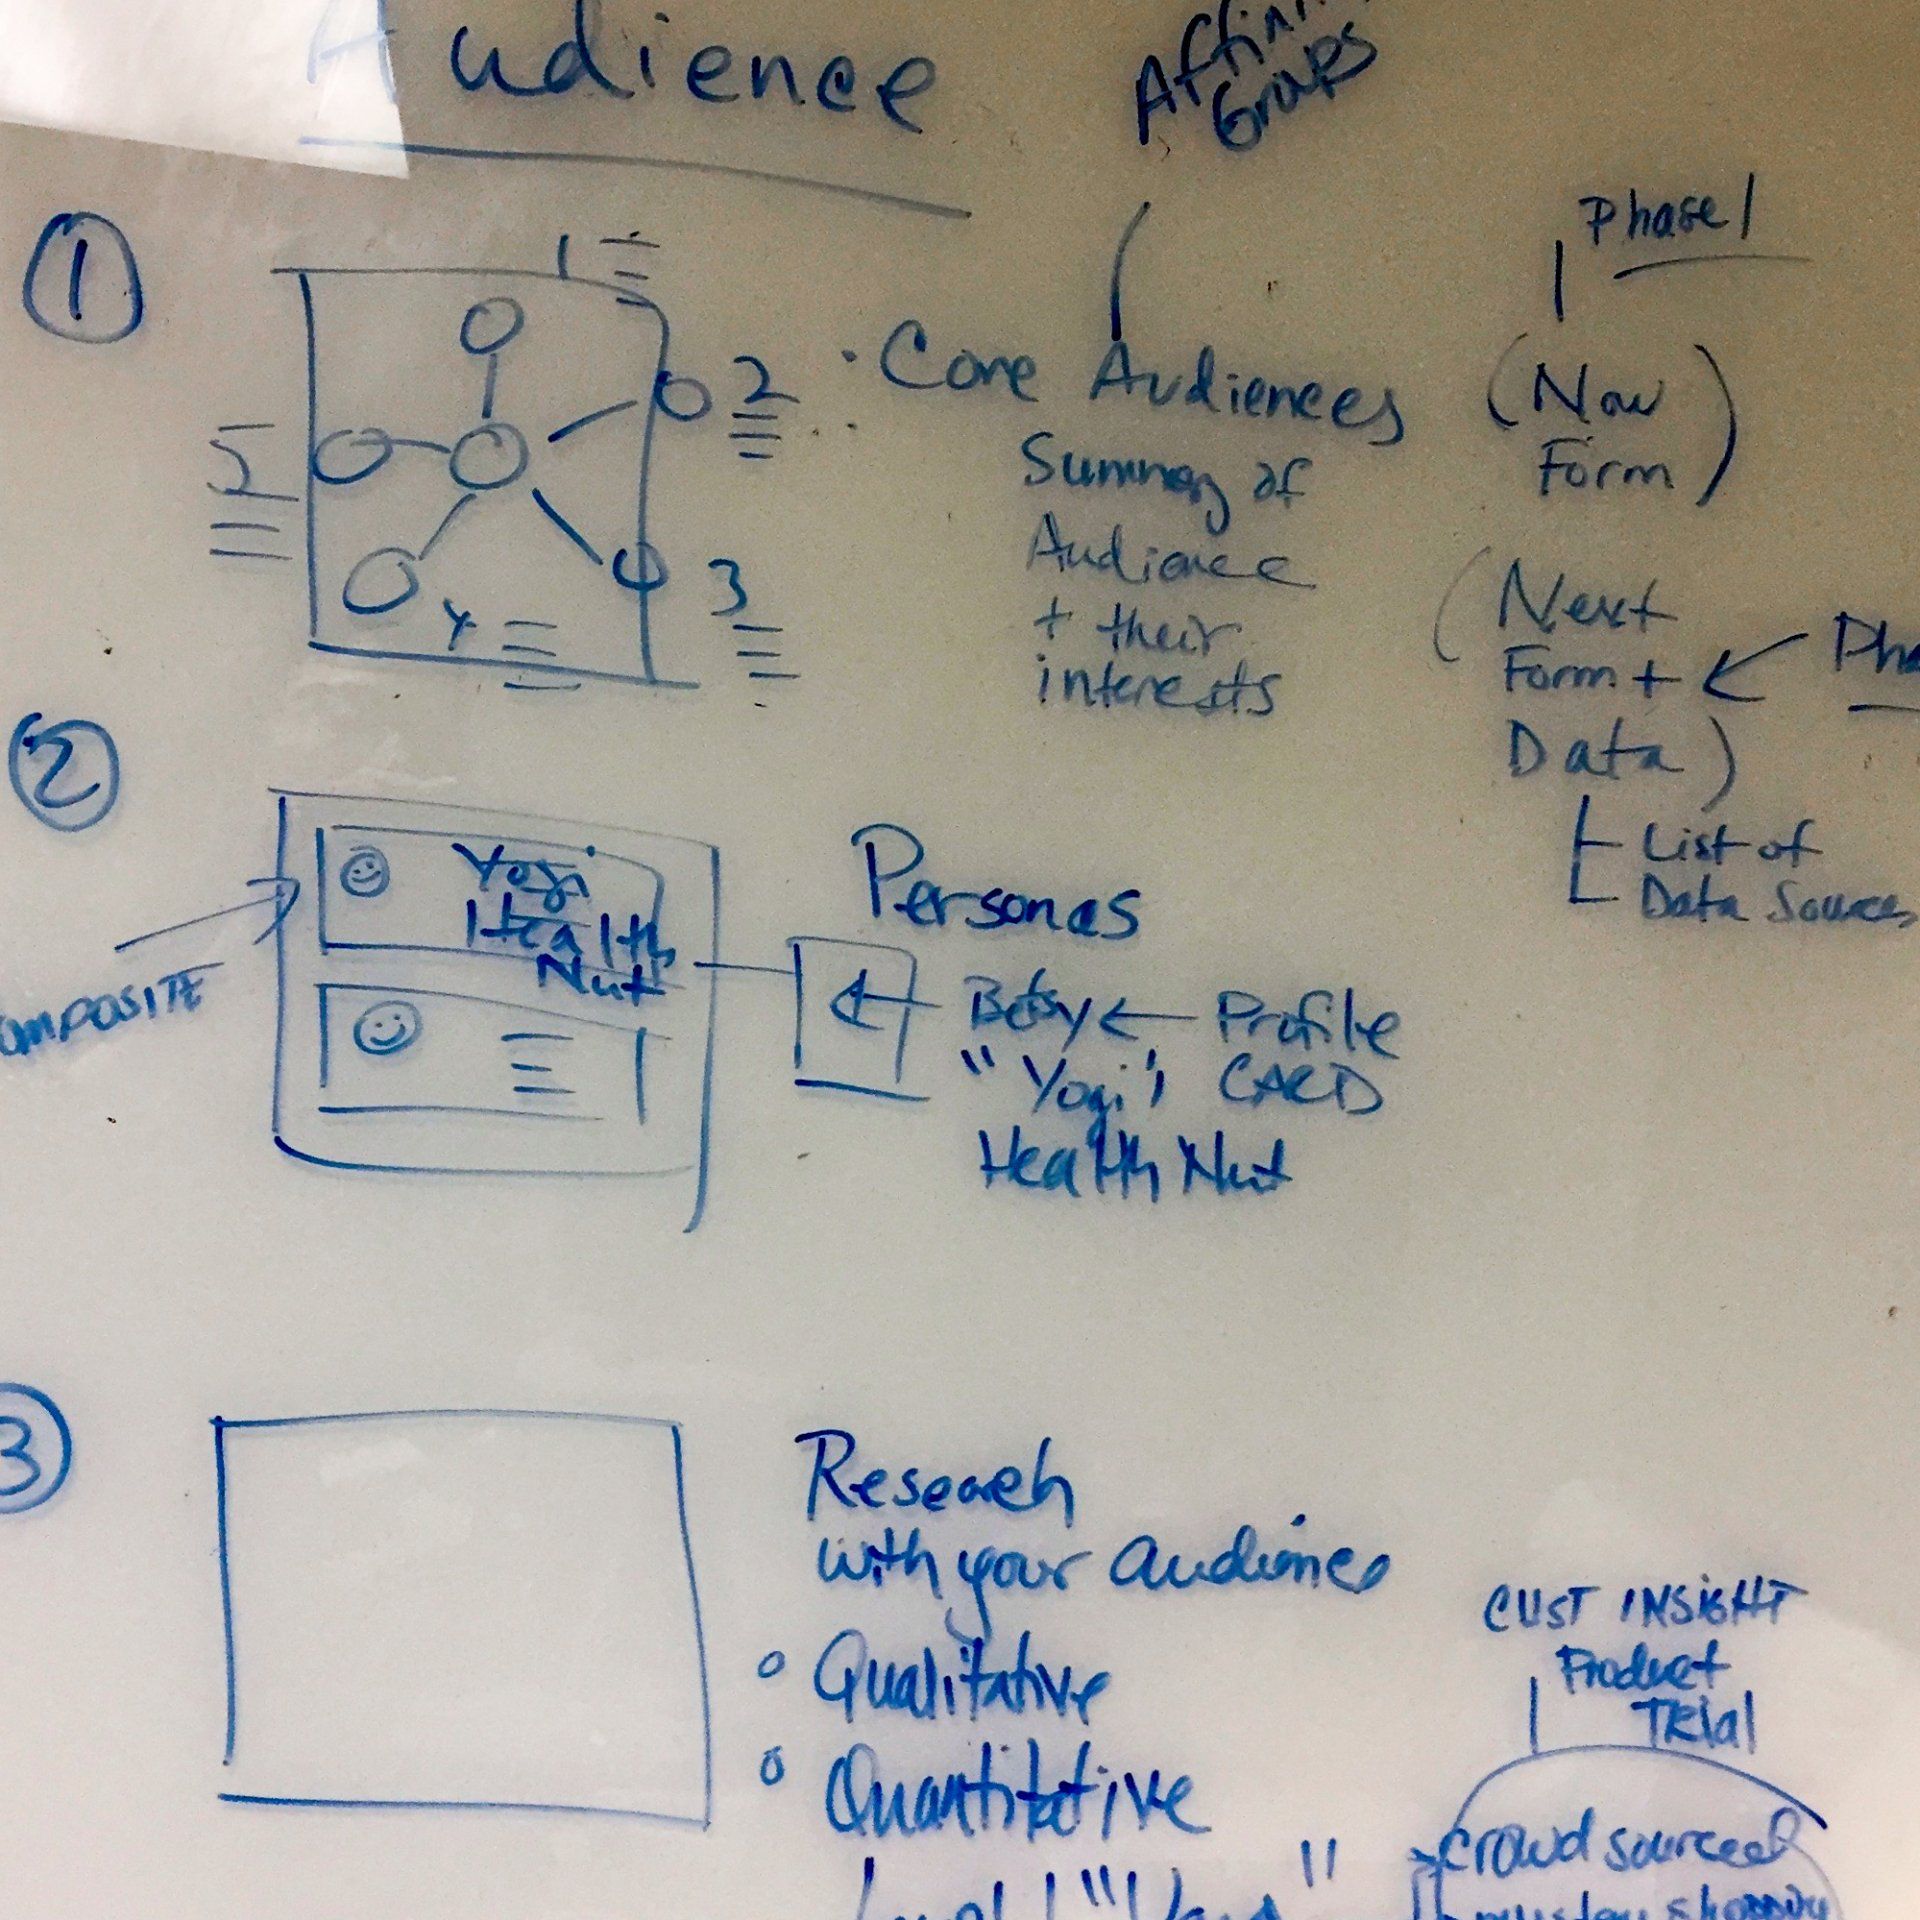 Audience
Groups
1
Phase 1
1
2
3
4
5
• Core Audiences
Summary of
Audience
+ their
interests
(Now
Form)
(Next
Form +
Data)
List of
Data Sources
2
Yogi
Health
Nut
Personas
Betsy ← Profile
"Yogi" CARD
Health Nut
3
Research
with your audience
Qualitative
Quantitative
CUST INSIGHT
Product
TRIal
crowd sourced